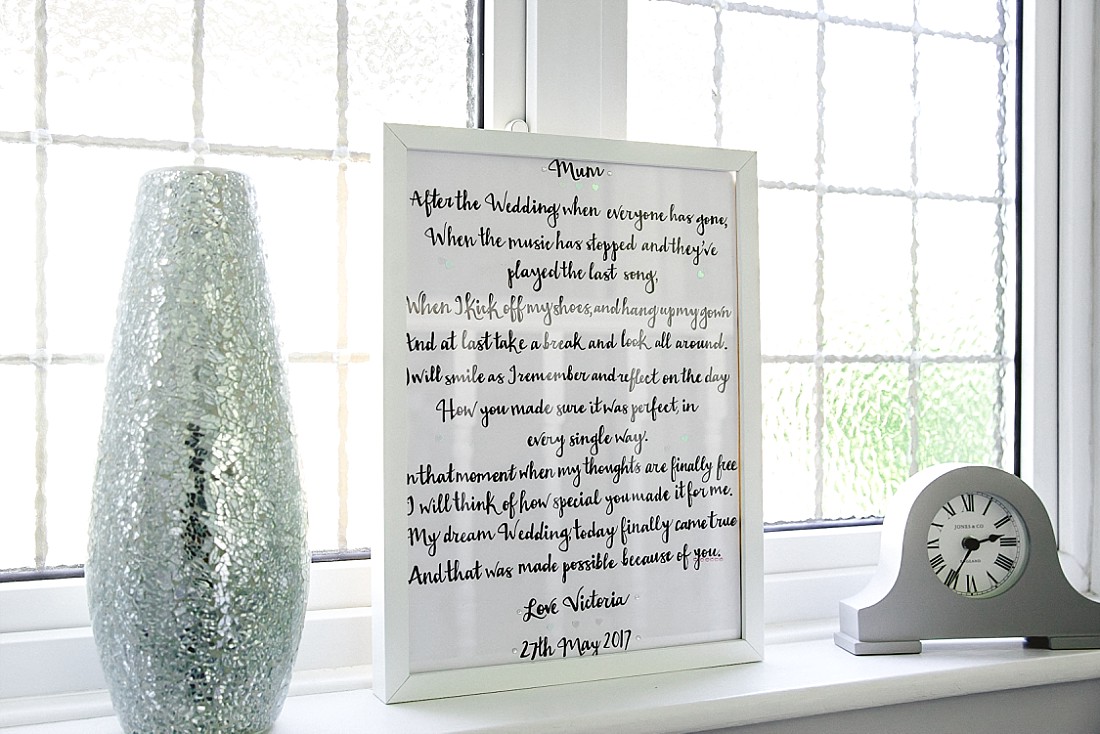 Mum
After the Wedding, when everyone has gone,
When the music has stopped and they've
played the last song,
When I kick off my shoes, and hang up my gown
And at last take a break and look all around.
I will smile as I remember and reflect on the day
How you made sure it was perfect, in
every single way.
n that moment when my thoughts are finally free
I will think of how special you made it for me.
My dream Wedding, today finally came true
And that was made possible because of you.
Love Victoria
27th May 2017
XII
I
II
III
IIII
V
VI
VII
VIII
IX
X
XI
JONES & CO
ENGLAND